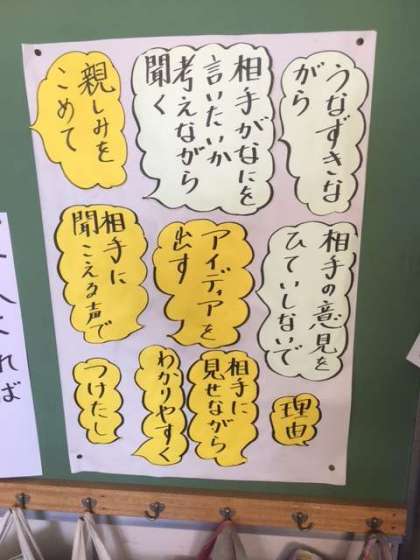 うなずきな
がら
相手がなにを
言いたいか
考えながら
聞く
親しみを
こめて
相手の意見を
ひていしないで
アイディアを
出す
相手に
聞こえる声で
理由
相手に
見せながら
わかりやすく
つけたし
れば